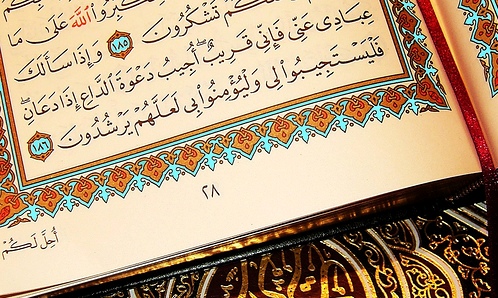 كُم
كَبِّرُوا اللَّهَ عَلَىٰ مَا
كُمْ تَشْكُرُونَ ١٨٥ وَإِذَا سَأَلَكَ
عِبَادِي عَنِّي فَإِنِّي قَرِيبٌ ۖ أُجِيبُ دَعْوَةَ الدَّاعِ إِذَا دَعَانِ ۖ
فَلْيَسْتَجِيبُوا لِي وَلْيُؤْمِنُوا بِي لَعَلَّهُمْ يَرْشُدُونَ ١٨٦
٢٨
أُحِلَّ لَكُمْ